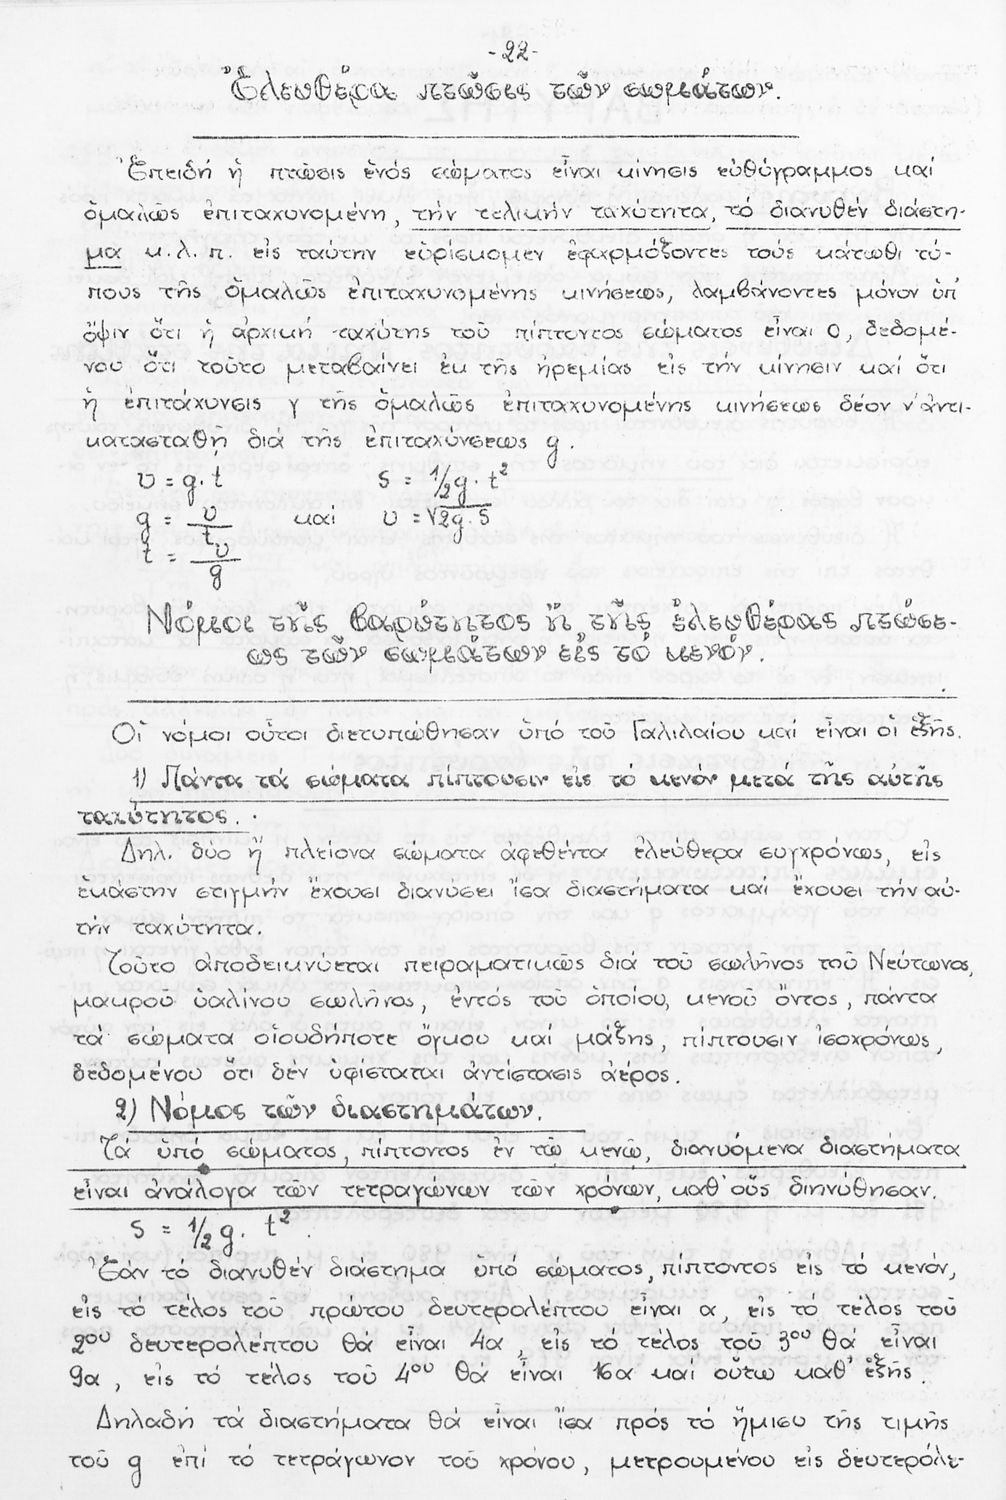 -22-
Ἐλευθέρα πτῶσις τῶν σωμάτων.
Ἐπειδή ἡ πτῶσις ἑνός σώματος εἶναι κίνησις εὐθύγραμμος καί
ὁμαλῶς ἐπιταχυνομένη, τήν τελικήν ταχύτητα, τό διανυθέν διάστη-
μα κ.λ.π. εἰς ταύτην εὑρίσκομεν ἐφαρμόζοντες τούς κάτωθι τύ-
πους τῆς ὁμαλῶς ἐπιταχυνομένης κινήσεως, λαμβάνοντες μόνον ὑπ'
ὄψιν ὅτι ἡ ἀρχική ταχύτης τοῦ πίπτοντος σώματος εἶναι 0, δεδομέ-
νου ὅτι τοῦτο μεταβαίνει ἐκ τῆς ἠρεμίας εἰς τήν κίνησιν καί ὅτι
ἡ ἐπιτάχυνσις γ τῆς ὁμαλῶς ἐπιταχυνομένης κινήσεως δέον ν'ἀντι-
κατασταθῆ διά τῆς ἐπιταχύνσεως g.
υ = g.t s = 1/2g. t²
g = υ/t καί υ = √2g.s
t = υ/g
Νόμοι τῆς βαρύτητος ἤ τῆς ἐλευθέρας πτώσε-
ως τῶν σωμάτων εἰς τό κενόν.
Οἱ νόμοι οὗτοι διετυπώθησαν ὑπό τοῦ Γαλιλαίου καί εἶναι οἱ ἑξῆς.
1) Πάντα τά σώματα πίπτουσιν εἰς το κενόν μετά τῆς αὐτῆς
ταχύτητος.
Δηλ. δύο ἤ πλείονα σώματα ἀφεθέντα ἐλεύθερα συγχρόνως, εἰς
ἑκάστην στιγμήν ἔχουσι διανύσει ἴσα διαστήματα καί ἔχουσι τήν αὐ-
τήν ταχύτητα.
Τοῦτο ἀποδεικνύεται πειραματικῶς διά τοῦ σωλῆνος τοῦ Νεύτωνος,
μακροῦ ὑαλίνου σωλῆνος, ἐντός τοῦ ὁποίου, κενοῦ ὄντος, πάντα
τά σώματα οἱουδήποτε ὄγκου καί μάζης, πίπτουσιν ἰσοχρόνως,
δεδομένου ὅτι δέν ὑφίσταται ἀντίστασις ἀέρος.
2) Νόμος τῶν διαστημάτων.
Τά ὑπό σώματος, πίπτοντος ἐν τῶ κενῶ, διανυόμενα διαστήματα
εἶναι ἀνάλογα τῶν τετραγώνων τῶν χρόνων, καθ' οὕς διηνύθησαν.
s = 1/2 g. t²
Ἐάν τό διανυθέν διάστημα ὑπό σώματος, πίπτοντος εἰς τό κενόν,
εἰς τό τέλος τοῦ πρώτου δευτερολέπτου εἶναι α, εἰς τό τέλος τοῦ
2ου δευτερολέπτου θά εἶναι 4α, εἰς τό τέλος τοῦ 3ου θά εἶναι
9α, εἰς τό τέλος τοῦ 4ου θά εἶναι 16α καί οὕτω καθ' ἑξῆς.
Δηλαδή τά διαστήματα θά εἶναι ἴσα πρός τό ἥμισυ τῆς τιμῆς
τοῦ g ἐπί τό τετράγωνον τοῦ χρόνου, μετρουμένου εἰς δευτερόλε-